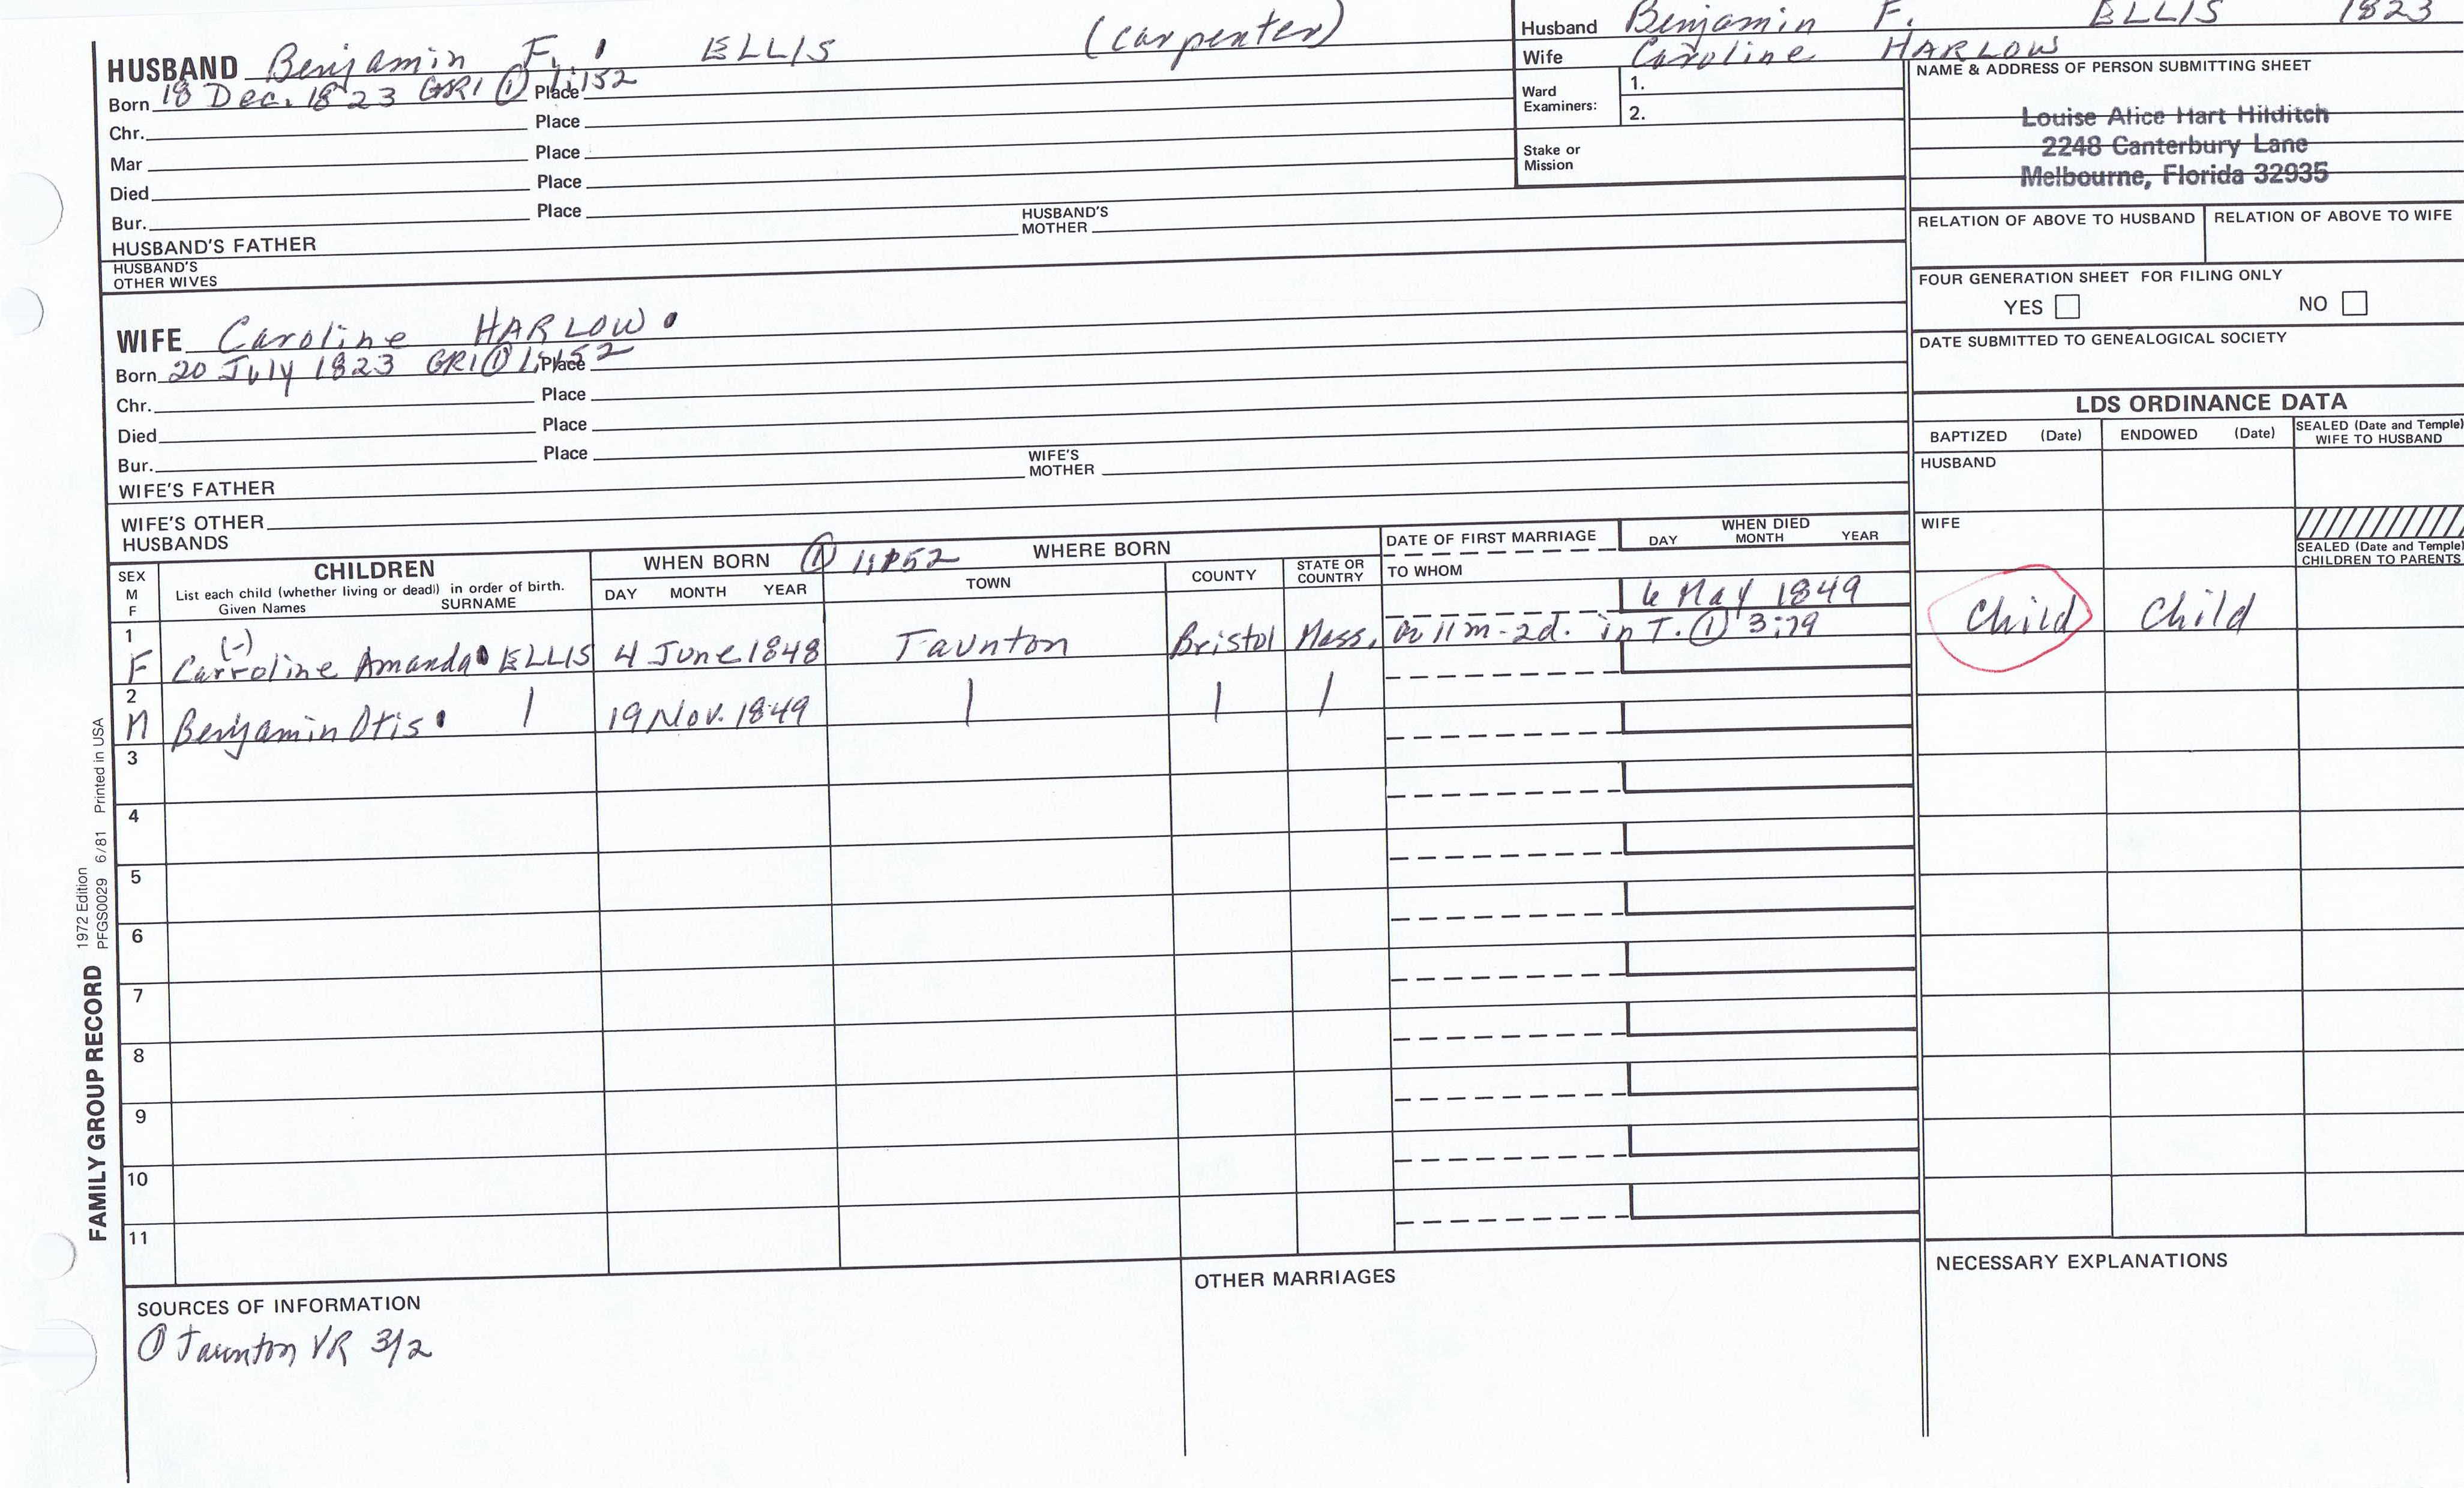 Husband Benjamin F. ELLIS 1823
Wife Caroline HARLOW
HUSBAND Benjamin F. ELLIS (carpenter)
Born 18 Dec. 1823 GRI ① 1:152 Place
Chr. Place
Mar Place
Died Place
Bur. Place
HUSBAND'S FATHER
HUSBAND'S MOTHER
HUSBAND'S OTHER WIVES
Ward Examiners: 1.
2.
Stake or Mission
NAME & ADDRESS OF PERSON SUBMITTING SHEET
Louise Alice Hart Hilditch
2248 Canterbury Lane
Melbourne, Florida 32935
RELATION OF ABOVE TO HUSBAND RELATION OF ABOVE TO WIFE
FOUR GENERATION SHEET FOR FILING ONLY
YES NO
DATE SUBMITTED TO GENEALOGICAL SOCIETY
WIFE Caroline HARLOW
Born 20 July 1823 GRI ① 1:152 Place
Chr. Place
Died Place
Bur. Place
WIFE'S FATHER
WIFE'S MOTHER
WIFE'S OTHER HUSBANDS
LDS ORDINANCE DATA
BAPTIZED (Date) ENDOWED (Date) SEALED (Date and Temple) WIFE TO HUSBAND
HUSBAND
WIFE
SEALED (Date and Temple) CHILDREN TO PARENTS
SEX M F
CHILDREN
List each child (whether living or dead) in order of birth.
Given Names SURNAME
WHEN BORN ① 1:152 WHERE BORN
DAY MONTH YEAR TOWN COUNTY STATE OR COUNTRY
DATE OF FIRST MARRIAGE
TO WHOM
WHEN DIED
DAY MONTH YEAR
1 6 May 1849
(-)
F Carroline Amanda ELLIS 4 June 1848 Taunton Bristol Mass. 11m-2d. in T. ① 3:79 Child Child
2
M Benjamin Otis 19 Nov. 1849
3
4
5
6
7
8
9
10
11
SOURCES OF INFORMATION
① Taunton VR 3/2
OTHER MARRIAGES
NECESSARY EXPLANATIONS
FAMILY GROUP RECORD
1972 Edition
PFGS0029 6/81 Printed in USA